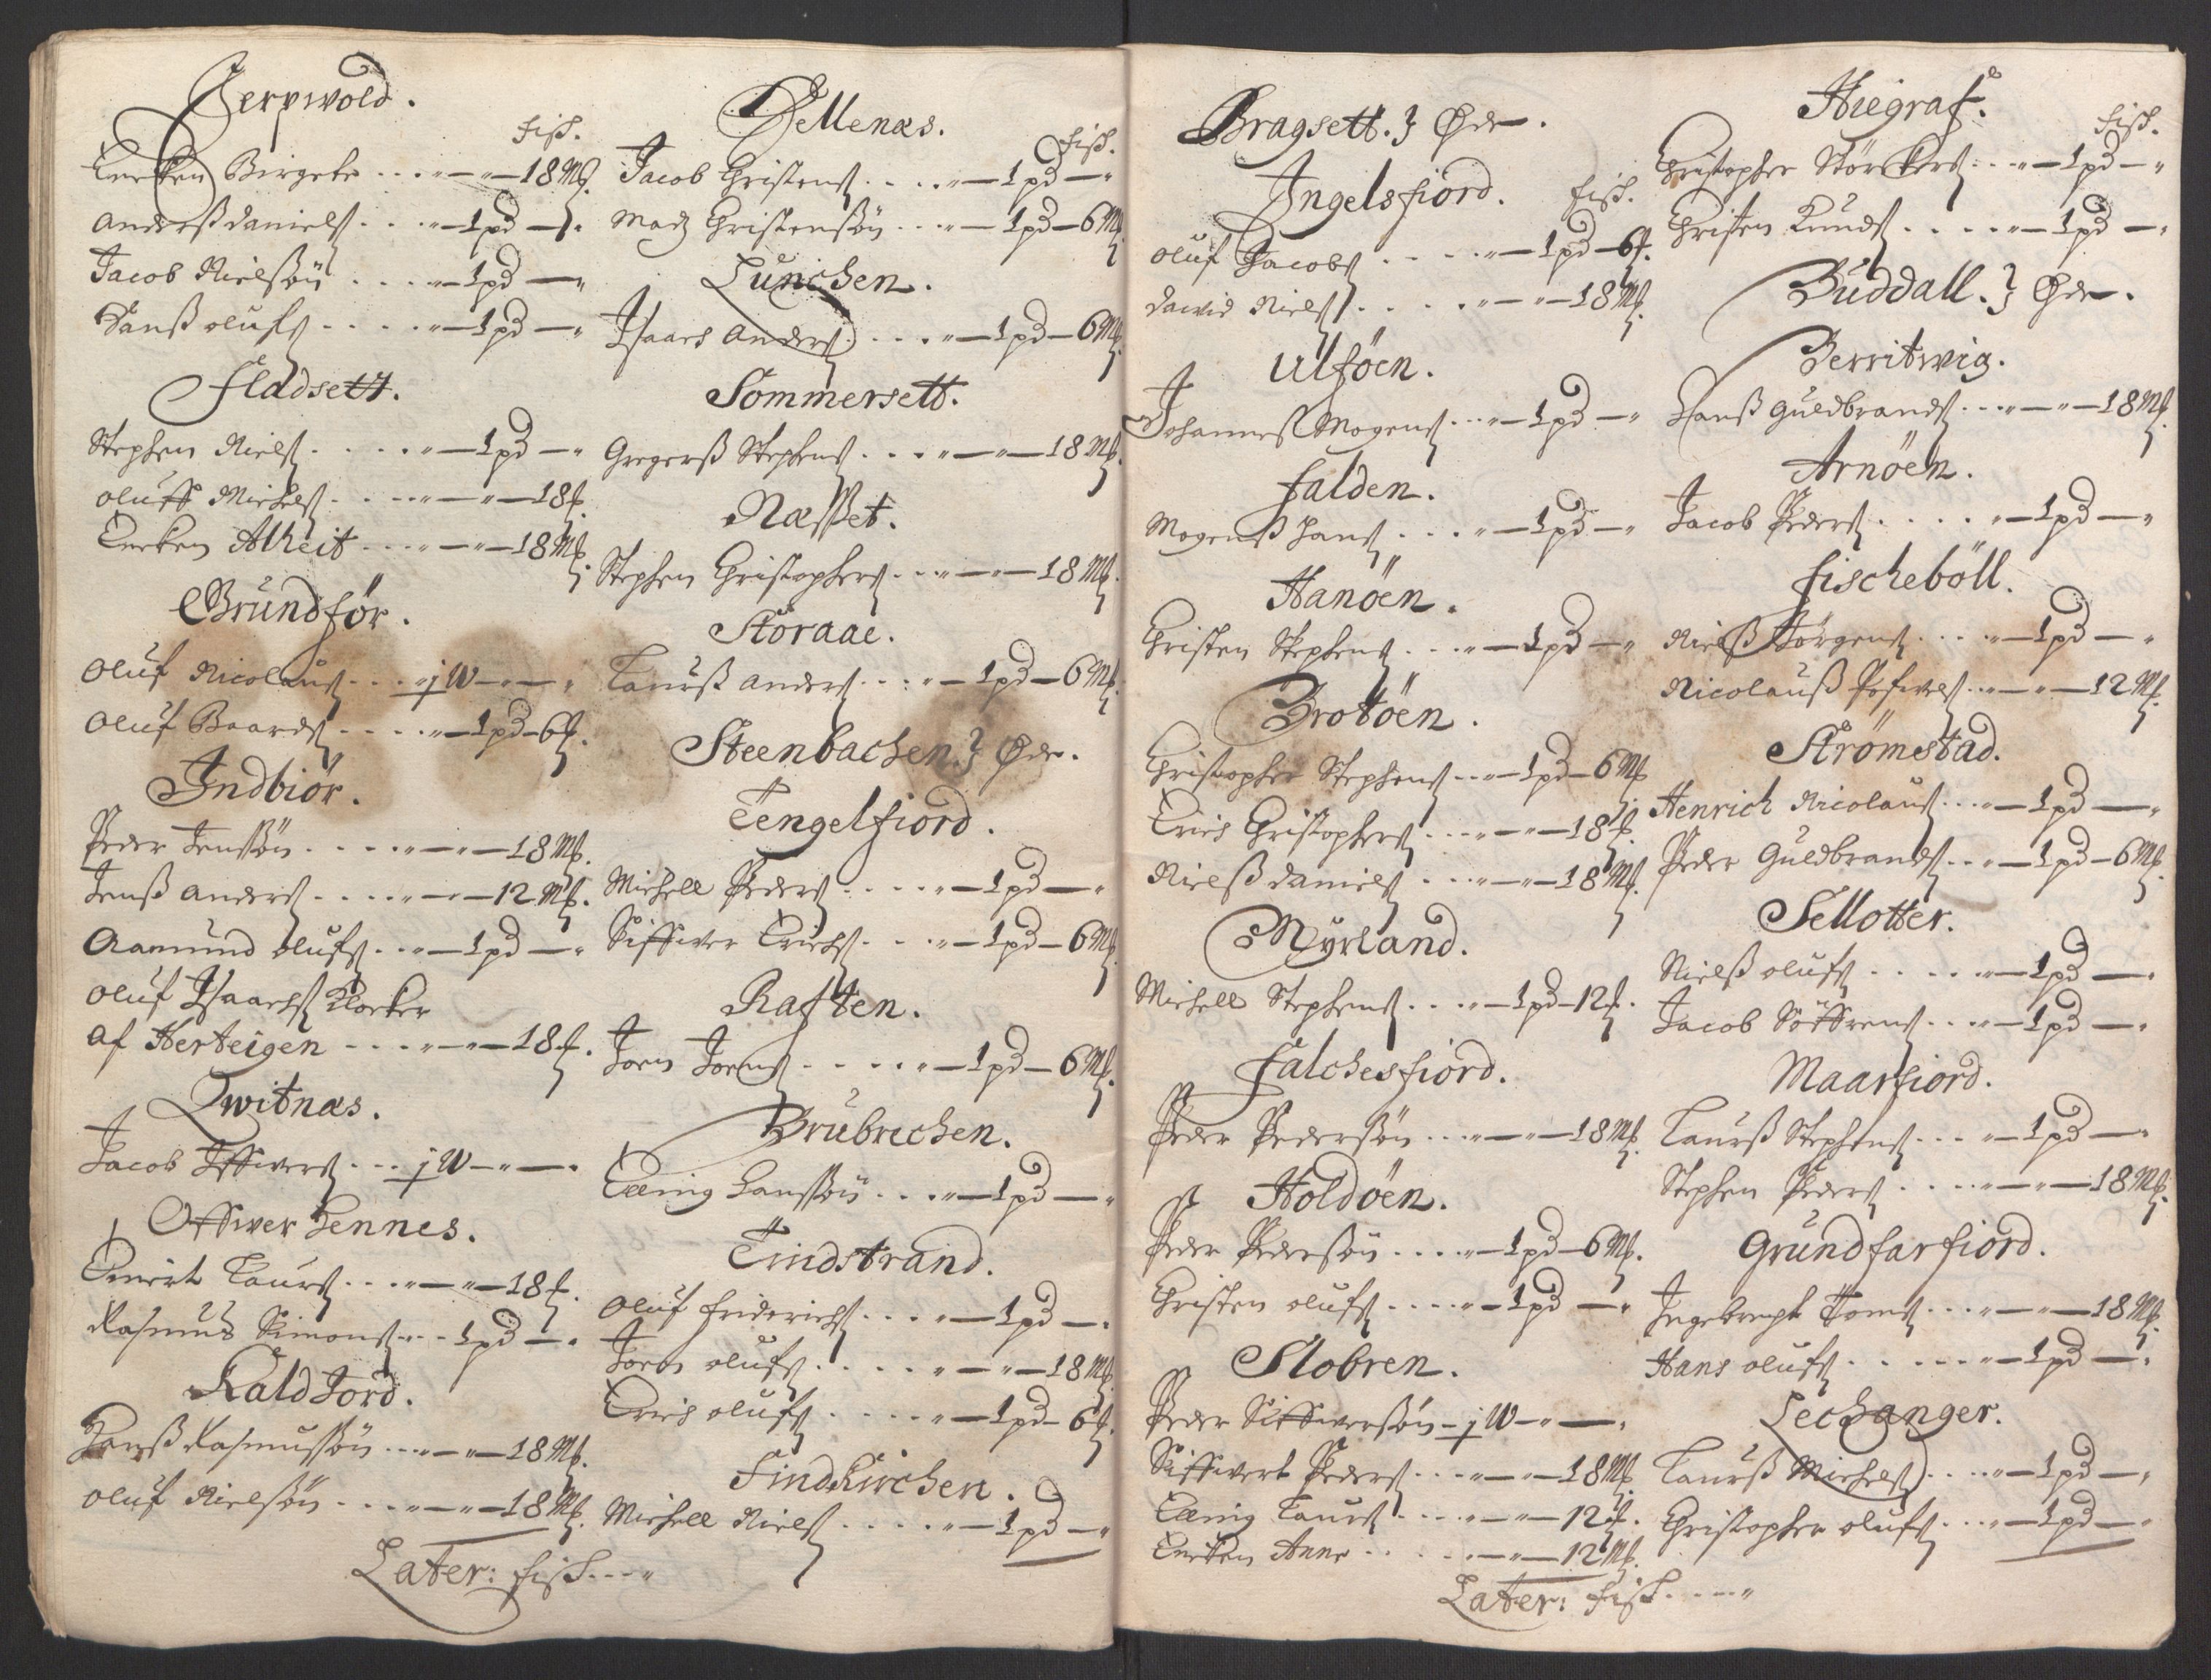 Jerpwold.
Fisk.
Encken Birgete - - - " — " — 18 Mk.
Anderß daniels - - - " — 1 pd — "
Jacob Nielsön - - - " — 1 pd — "
Hanß olufs - - - " — 1 pd — "
Fladsett.
Stephen Niels - - - " — 1 pd — "
oluff Michels - - - " — " — 18 Mk.
Encken Alheit - - - " — " — 18 Mk.
Grundför.
Oluf Nicolaus - - - j W — " — "
Oluf Baards - - - " — 1 pd — 6 Mk.
Indbiör.
Peder Jenssön - - - " — " — 18 Mk.
Jenß Anders - - - " — " — 12 Mk.
Aamund olufs - - - " — 1 pd — "
Oluf Isaachs Klocker
af Herteigen - - - " — " — 18 Mk.
Qwitnæs.
Jacob Iffwers - - - j W — " — "
Offwer Hennes.
Ewert Laurs - - - " — " — 18 Mk.
Rasmus Simons - - - 1 pd — "
Kald Jord.
Hanß Rasmussön - - - " — " — 18 Mk.
Oluf Nielsön - - - " — " — 18 Mk.
Later: Fisk - - - "
Hellenæs.
Fisk.
Jacob Christens - - - " — 1 pd — "
Madz Christensön - - - " — 1 pd — 6 Mk.
Lunchen.
Isaach Anders - - - " — 1 pd — 6 Mk.
Sommersett.
Gregerß Stephens - - - " — " — 18 Mk.
Næsset.
Stephen Christophers - - - " — " — 18 Mk.
Storaae.
Laurß Anders - - - " — 1 pd — 6 Mk.
Steenbachen } Øde.
Tengelfiord.
Michell Peders - - - " — 1 pd — "
Siffwer Erichs - - - " — 1 pd — 6 Mk.
Raften.
Jorn Jorns - - - " — 1 pd — 6 Mk.
Brubrechen.
Elling Hanssön - - - " — 1 pd — "
Tindstrand.
Oluf Friderichs - - - " — 1 pd — "
Jorn olufs - - - " — " — 18 Mk.
Erich olufs - - - " — 1 pd — 6 Mk.
Findkirchen.
Michell Niels - - - " — 1 pd — "
Bragsett. } Øde.
Ingelsfiord.
Fisk.
Oluf Jacobs - - - " — 1 pd — 6 Mk.
Dawid Niels - - - " — " — 18 Mk.
Ulföen.
Johannes Mogens - - - " — 1 pd — "
Falden.
Mogenß Hans - - - " — 1 pd — "
Hanöen.
Christen Stephens - - - " — 1 pd — "
Brotöen.
Christopher Stephens - - - " — 1 pd — 6 Mk
Erich Christophers - - - " — " — 18 Mk.
Nielß daniels - - - " — " — 18 Mk.
Myrland.
Michell Stephens - - - " — 1 pd — 12 Mk.
Falchesfiord.
Peder Pedersön - - - " — " — 18 Mk.
Holdöen.
Peder Pedersön - - - " — 1 pd — 6 Mk.
Christen olufs - - - " — 1 pd — "
Slobren.
Peder Siffwersön - j W — " — "
Siffwert Peders - - - " — " — 18 Mk
Elling Laurs - - - " — " — 12 Mk.
Encken Anne - - - " — " — 12 Mk.
Later: Fisk - - - "
Hiegraf.
Fisk.
Christopher Störckers - - - " — 1 pd — "
Christen Knuds - - - " — 1 pd — "
Buddall. } Øde.
Berritwig.
Hanß Guldbrands - - - " — " — 18 Mk.
Arnöen.
Jacob Peders - - - " — 1 pd — "
Fischeböll.
Nielß Jörgens - - - " — 1 pd — "
Nicolauß Pofwels - - - " — " — 12 Mk.
Strömstad.
Henrich Nicolaus - - - " — 1 pd — "
Peder Guldbrands - - - " — 1 pd — 6 Mk.
Sellotter.
Nielß olufs - - - " — 1 pd — "
Jacob Söffrens - - - " — 1 pd — "
Maarfiord.
Laurß Stephens - - - " — 1 pd — "
Stephen Peders - - - " — " — 18 Mk.
Grundfarfiord.
Ingebregt Toms - - - " — " — 18 Mk.
Hans olufs - - - " — 1 pd — "
Lechanger.
Laurß Michels - - - " — 1 pd — "
Christopher olufs - - - " — 1 pd — "